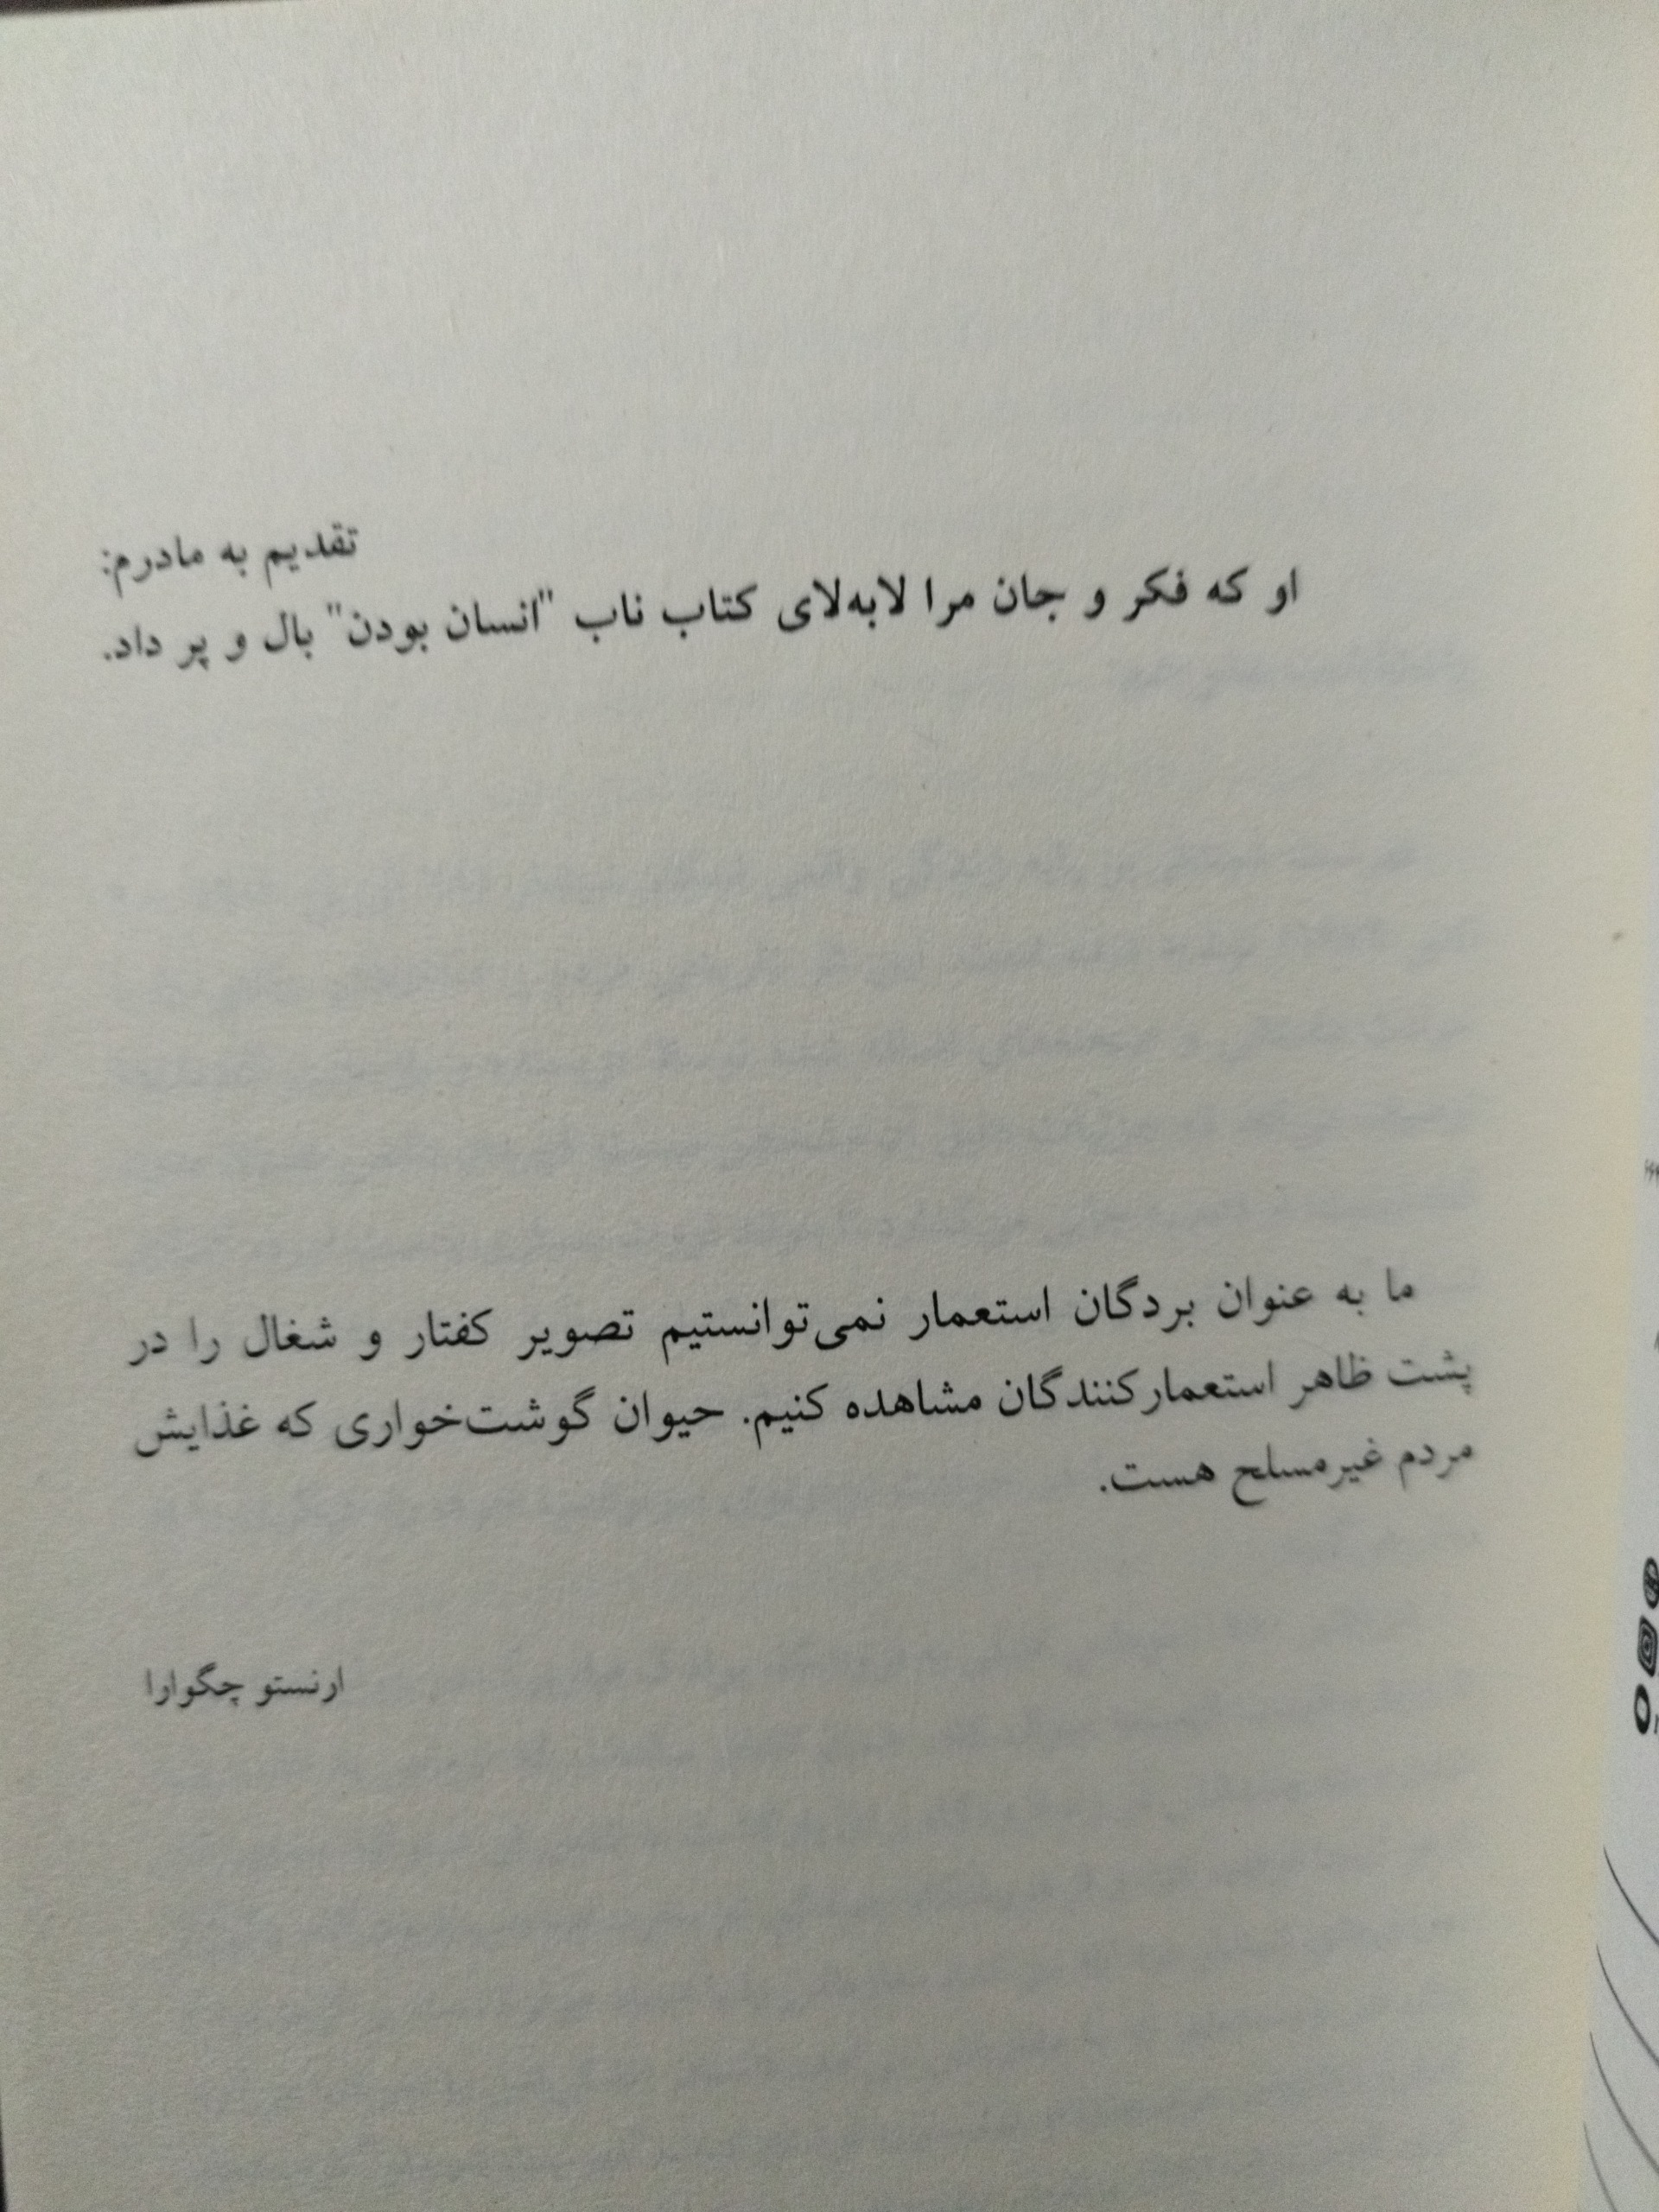 تقدیم به مادرم:
او که فکر و جان مرا لابه‌لای کتاب ناب "انسان بودن" بال و پر داد.
ما به عنوان بردگان استعمار نمی‌توانستیم تصویر کفتار و شغال را در
پشت ظاهر استعمارکنندگان مشاهده کنیم. حیوان گوشت‌خواری که غذایش
مردم غیرمسلح هست.
ارنستو چگوارا